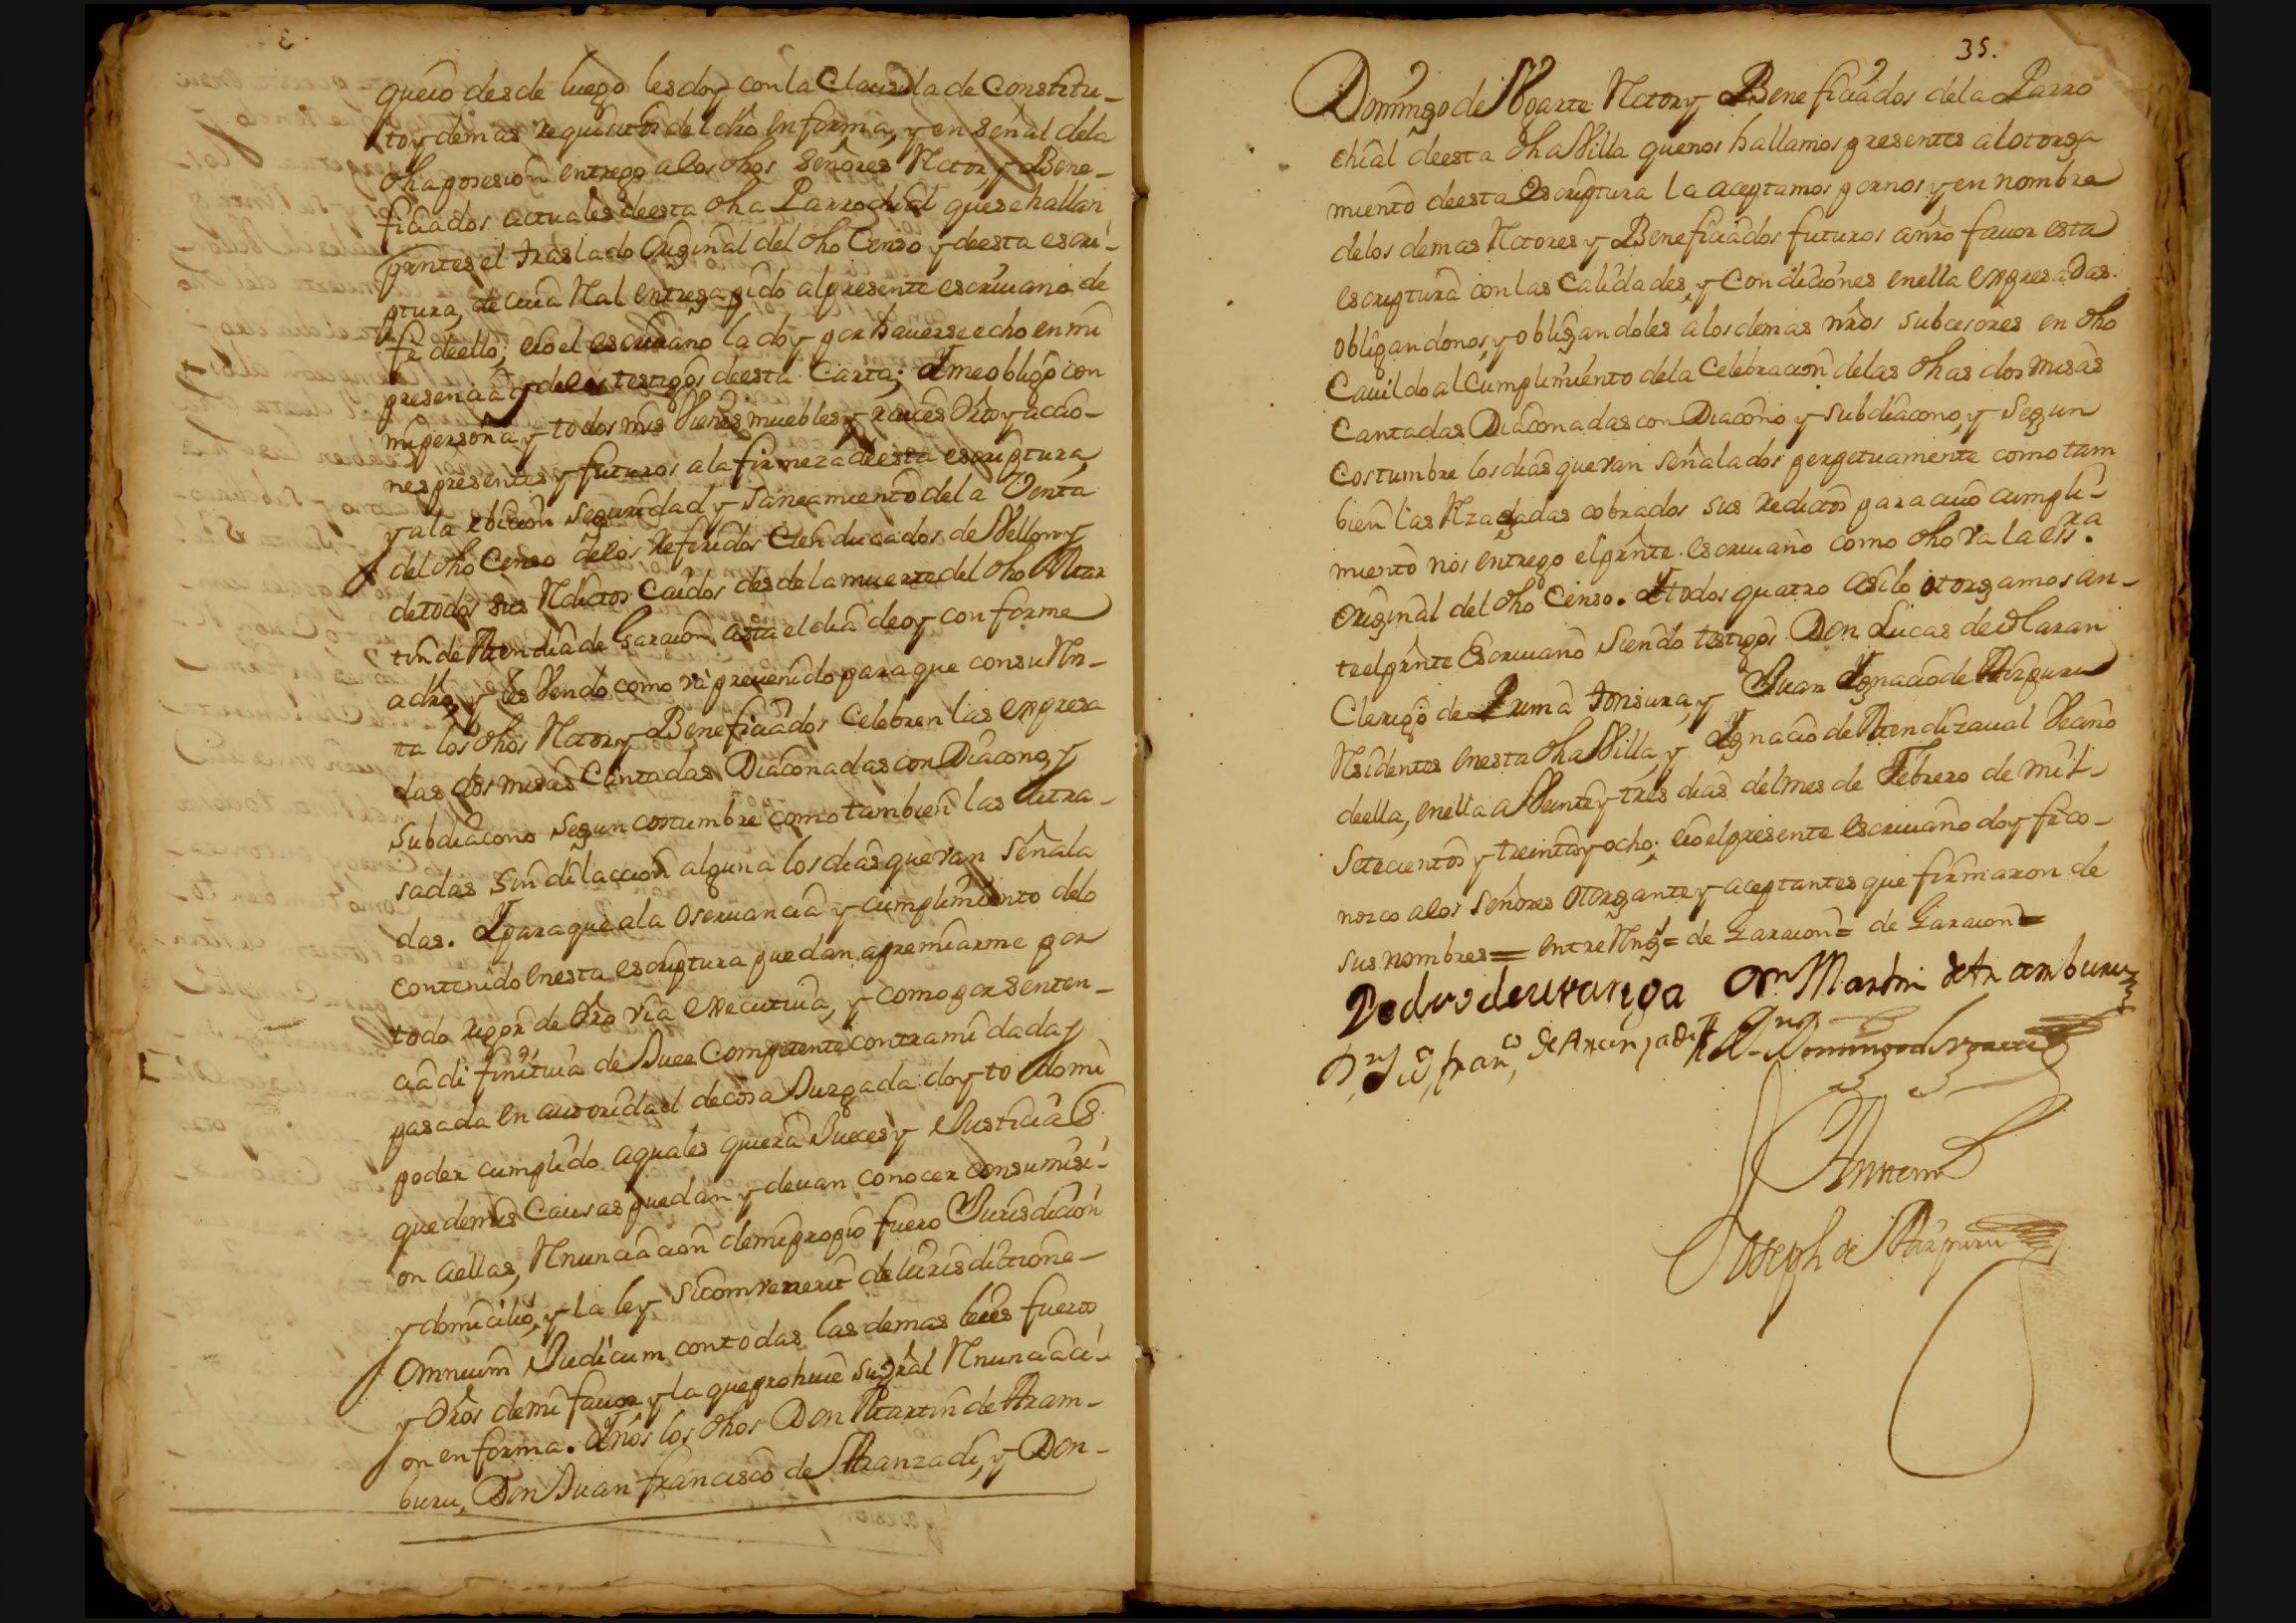 queio desde luego lesdoy con la Clausula de Constitu-
to y demas requisitos del dro en forma, y en señal dela
dha posesion entrego a los dhos señores Rector y Bene-
ficiados actuales deesta dha Parrochial que se hallan
presntes el traslado original del dho Censo y deesta escri-
ptura, de cuia Real entrega pido al presente escriuano de
fe deello; eio el escriuano la doy por hauerse echo en mi
presencia y delos testigos deesta Carta; Y me obligo con
mi persona y todos mis Vienes muebles y raices dros y accio-
nes presentes y futuros a la firmeza deesta escriptura,
y a la ebicion seguridad y saneamiento dela Venta
del dho Censo delos referidos Cien ducados de Vellon y
de todos sus Reditos Caidos desde la muerte del dho Mar
tin de Mendia de Garacion asta el dia deoy conforme
a dro, y les Vendo como va preuenido para que con su Rn-
ta los dhos Rector y Beneficiados Celebren las expresa
das dos misas Cantadas Diaconadas con Diacono, y
subdiacono segun costumbre como tambien las atra-
sadas sin dilaccion alguna los dias que van señala
das. Y para que a la oseruancia y cumplimiento delo
contenido enesta escriptura puedan apremiarme por
todo rigor de dro via executiua, y como por senten-
cia difinitiua de Juez Competente contra mi dada y
pasada en autoridad de cosa Juzgada doy todo mi
poder cumplido a quales quiera Jueces y Justicias
que demis Causas puedan y deuan conocer con sumisi-
on a ellas, Rnunciacion demi propio fuero Jurisdicion
y domicilio, y la ley sicomvenerit de iurisdictione-
omnium Judicum con todas las demas leies fueros
y dros demi fauor y la que prohiue su gral Rnunciaci-
on en forma. Y nos los dhos Don Martin de Aram-
buru, Don Juan francisco de Aranzadi, y Don-
35.
Domingo de Vgarte Rector y Beneficiados dela Parro
chial deesta dha Villa que nos hallamos presentes al otorga
miento deesta escriptura la aceptamos por nos y en nombre
delos demas Rectores y Beneficiados futuros a nro fauor esta
escriptura con las Calidades, y Condiciones enella expresadas.
obligandonos, y obligandoles a los demas nros subcesores en dho
Cauildo al Cumplimiento dela Celebracion delas dhas dos misas
Cantadas Diaconadas con Diacono y subdiacono, y segun
costumbre los dias que van señalados perpetuamente como tam
bien las Rzagadas cobrados sus reditos para cuio cumpli-
miento nos entrego el prnte. escriuano como dho va la essra.
original del dho Censo. Y todos quatro asi lo otorgamos an-
te el prnte Escriuano siendo testigos Don Lucas de Olaran
Clerigo de Prima tonsura, y Juan Ygnacio de Aizpuru
Rsidentes enesta dha Villa, y Ygnacio de Mendizaual Vecino
deella, enella a Veinte y tres dias del mes de Febrero de mil-
setecientos y treinta y ocho; eio el presente escriuano doy fe co-
nozco a los señores otorgante y aceptantes que firmaron de
sus nombres= entre Rngs= de Garacion= de Garacion=
Pedro de uranga Dn Martin de Aramburu
Dn Ju, franco, de Aranzadi Dn Domingo de Vgarte
Antemi
Joseph de Aizpuru